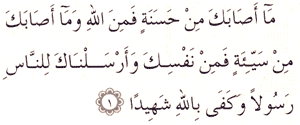 مَا أَصَابَكَ مِنْ حَسَنَةٍ فَمِنَ اللهِ وَمَا أَصَابَكَ
مِنْ سَيِّئَةٍ فَمِنْ نَفْسِكَ وَأَرْسَلْنَاكَ لِلنَّاسِ
رَسُولاً وَكَفَى بِاللهِ شَهِيدًا ١